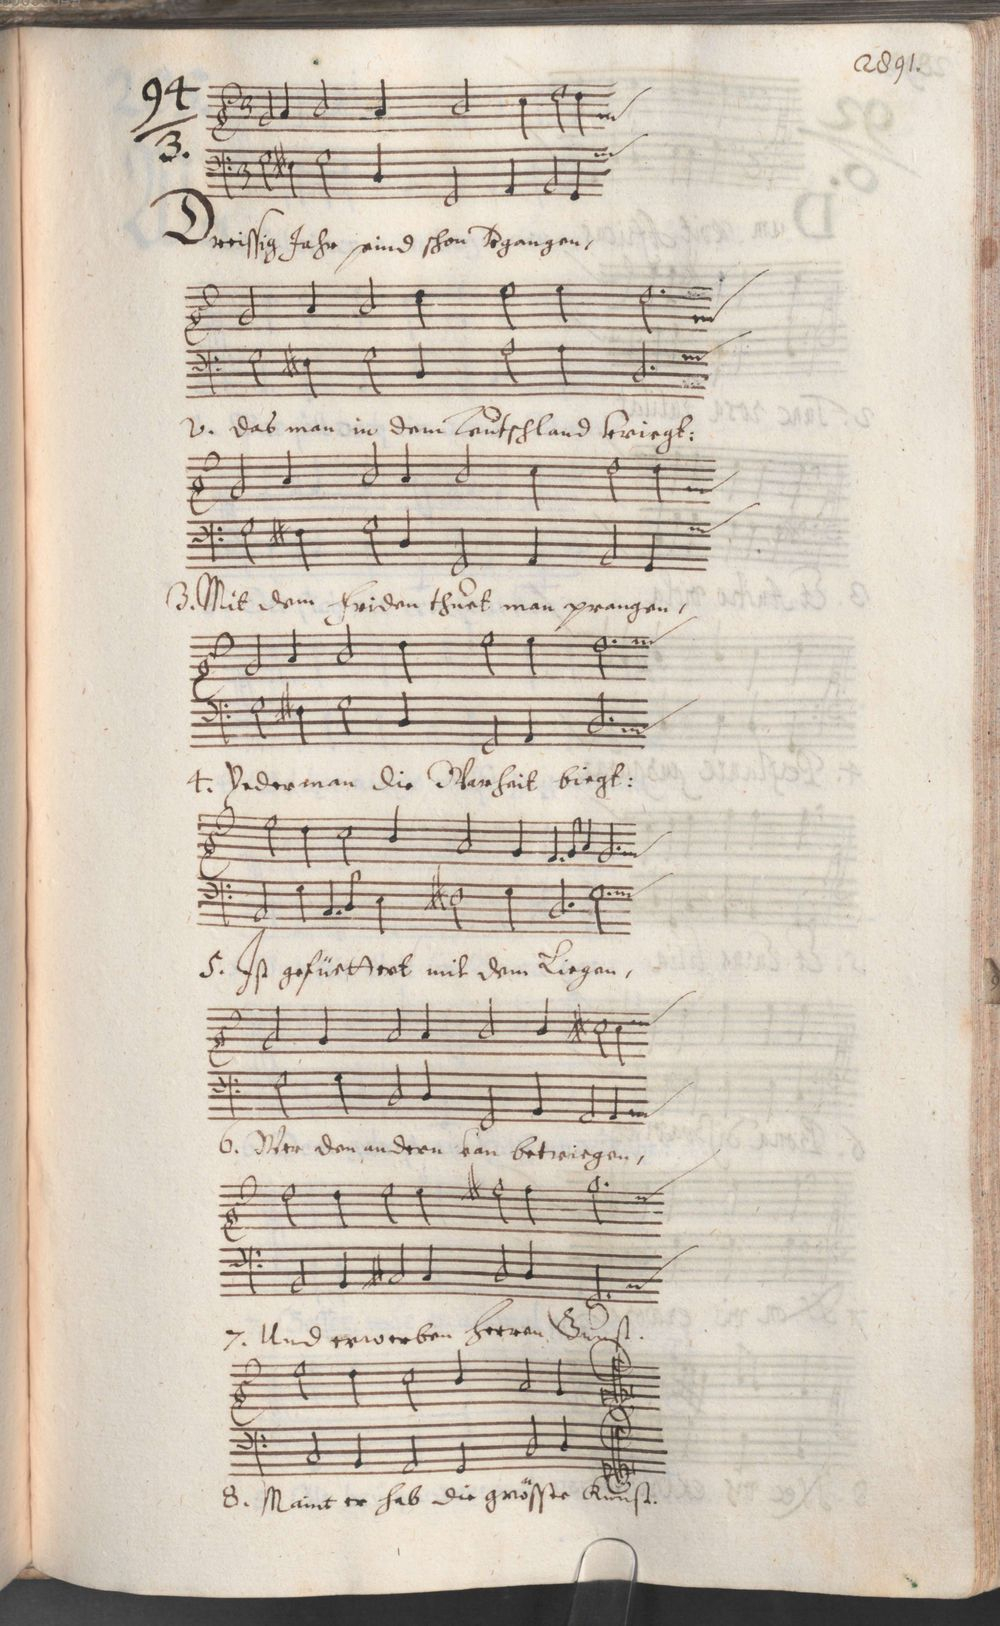 2891.
94
3.
Dreissig Jahr seind schon vergangen,
2. das man in dem Teutschland kriegt:
3. Mit dem friden thuet man prangen,
4. Yederman die Warheit biegt:
5. Ist gefüettert mit dem Liegen,
6. Wer den andern kan betriegen,
7. Und erwerben herren Gunst.
8. Maint er hab die grösste Kunst.